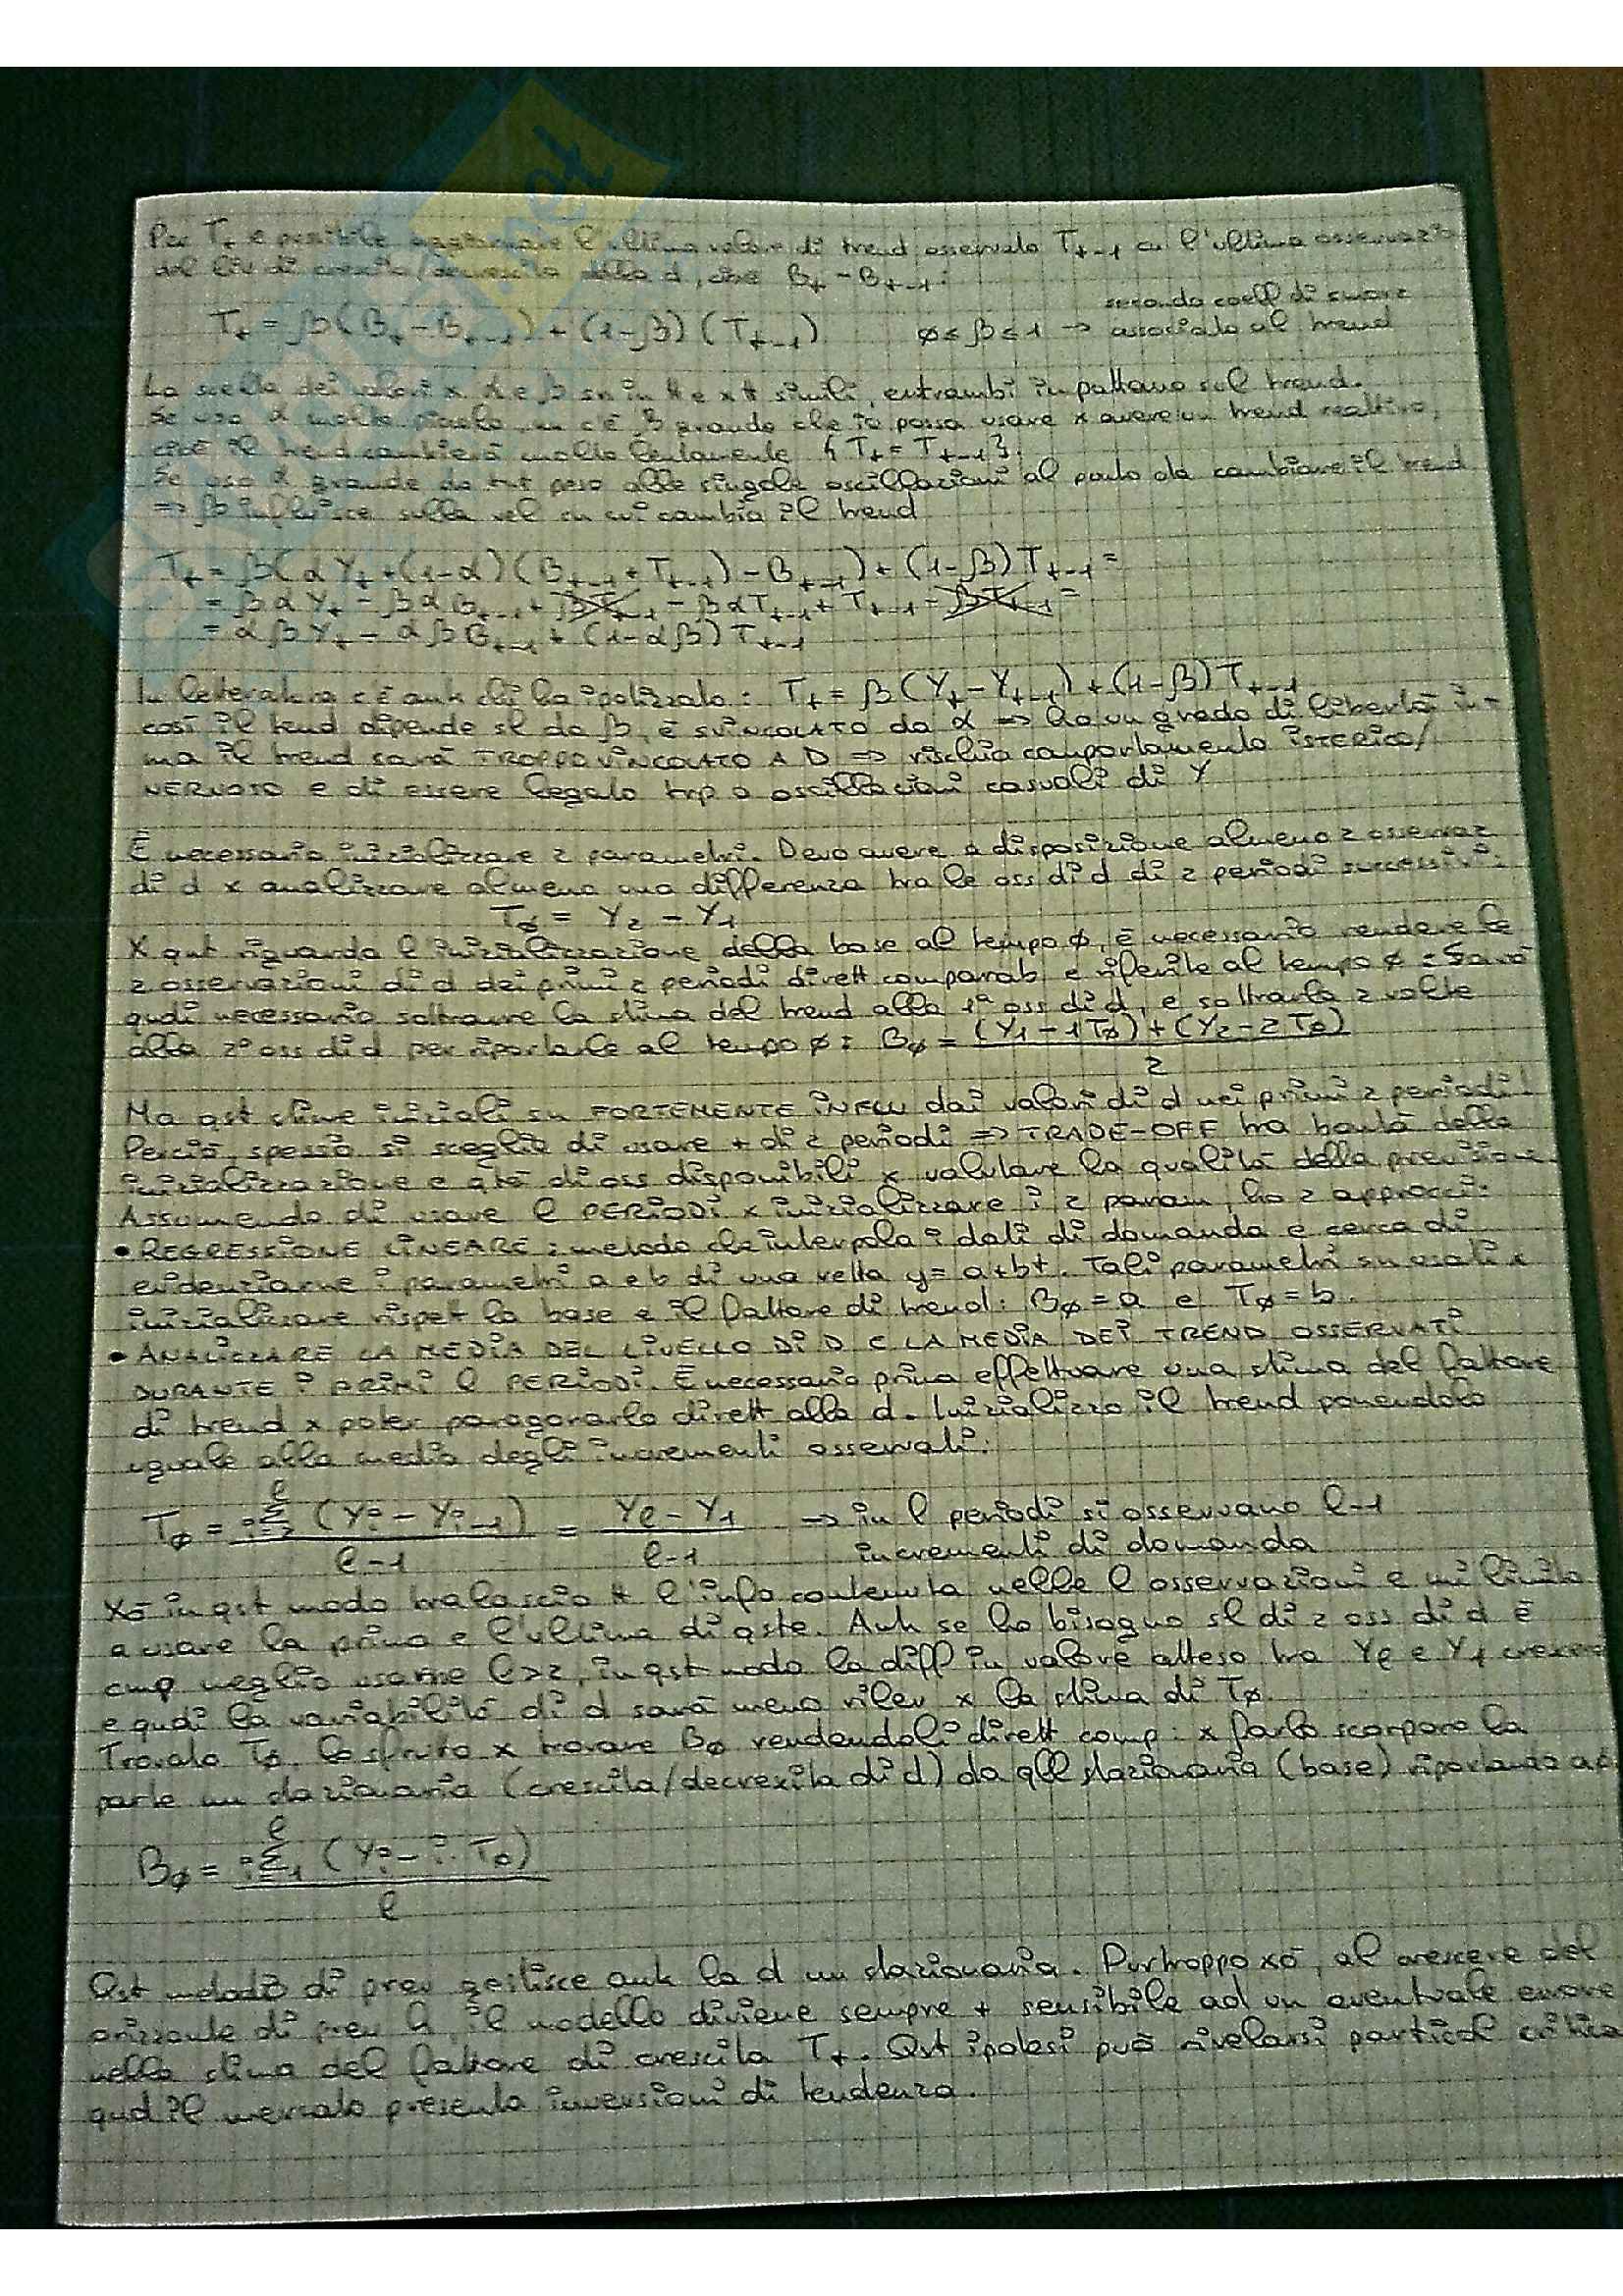 Per T_t è possibile aggiornare l'ultimo valore di trend osservato T_{t-1} cn l'ultima osservazio
del liv di crescita/decrescita della d, cioè B_t - B_{t-1}:
T_t = β(B_t - B_{t-1}) + (1-β)(T_{t-1}) ∅ ≤ β ≤ 1 → secondo coeff di smorz
associato al trend
La scelta dei valori x α e β sn in tt e x tt simili, entrambi impattano sul trend.
Se uso α molto piccolo, nn c'è β grande che io possa usare x avere un trend reattivo,
cioè il trend cambierà molto lentamente {T_t = T_{t-1}}.
Se uso α grande do tnt peso alle singole oscillazioni al punto da cambiare il trend
=> β influisce sulla vel cn cui cambia il trend
T_t = β(αY_t + (1-α)(B_{t-1} + T_{t-1}) - B_{t-1}) + (1-β)T_{t-1} =
= βαY_t - βαB_{t-1} + βT_{t-1} - βαT_{t-1} + T_{t-1} - βT_{t-1} =
= αβY_t - αβB_{t-1} + (1-αβ)T_{t-1}
In letteratura c'è ank chi ha ipotizzato: T_t = β(Y_t - Y_{t-1}) + (1-β)T_{t-1}
così il tend dipende sl da β, è SVINCOLATO da α => ha un grado di libertà in +
ma il trend sarà TROPPO VINCOLATO A D => rischia comportamento ISTERICO/
NERVOSO e di essere legato trp a oscillazioni casuali di Y
È necessario inizializzare 2 parametri. Devo avere a disposizione almeno 2 osservaz
di d x analizzare almeno una differenza tra le oss di d di 2 periodi successivi:
T_∅ = Y_2 - Y_1
X qnt riguarda l'inizializzazione della base al tempo ∅, è necessario rendere le
2 osservazioni di d dei primi 2 periodi dirett comparab e riferite al tempo ∅: Sarà
qudi necessario sottrarre la stima del trend alla 1ª oss di d, e sottrarla 2 volte
alla 2ª oss di d per riportarle al tempo ∅: B_∅ = ((Y_1 - 1T_∅) + (Y_2 - 2T_∅)) / 2
Ma qst stime iniziali sn FORTEMENTE INFLU dai valori di d nei primi 2 periodi!
Perciò, spesso si sceglie di usare + di 2 periodi => TRADE-OFF tra bontà della
inizializzazione e qtà di oss disponibili x valutare la qualità della previsione.
Assumendo di usare l PERIODI x inizializzare i 2 param, ho 2 approcci:
• REGRESSIONE LINEARE: metodo che interpola i dati di domanda e cerca di
evidenziarne i parametri a e b di una retta y = a+bt. Tali parametri sn usati x
inizializzare rispet la base e il fattore di trend: B_∅ = a e T_∅ = b.
• ANALIZZARE LA MEDIA DEL LIVELLO DI D E LA MEDIA DEI TREND OSSERVATI
DURANTE I PRIMI l PERIODI. È necessario prima effettuare una stima del fattore
di trend x poter paragonarlo dirett alla d. Inizializzo il trend ponendolo
uguale alla media degli incrementi osservati:
T_∅ = Σ^l (Y_i - Y_{i-1}) / (l-1) = (Y_l - Y_1) / (l-1) => in l periodi si osservano l-1
incrementi di domanda
Xò in qst modo tralascio tt l'info contenuta nelle l osservazioni e mi limito
a usare la prima e l'ultima di qste. Ank se ho bisogno sl di 2 oss di d è
cmq meglio usarne l>2, in qst modo la diff in valore atteso tra Y_l e Y_1 cresce
e qudi la variabilità di d sarà meno rilev x la stima di T_∅.
Trovato T_∅, lo sfrutto x trovare B_∅ rendendoli dirett comp: x farlo scorporo la
parte nn stazionaria (crescita/decrexita di d) da qll stazionaria (base) riportando al
B_∅ = Σ_{i=1}^l (Y_i - i·T_0) / l
Qst metodo di prev gestisce ank la d nn stazionaria. Purtroppo xò, al crescere del
orizzonte di prev h, il modello diviene sempre + sensibile ad un eventuale errore
nella stima del fattore di crescita T_t. Qst ipotesi può rivelarsi particol critica
qnd il mercato presenta inversioni di tendenza.